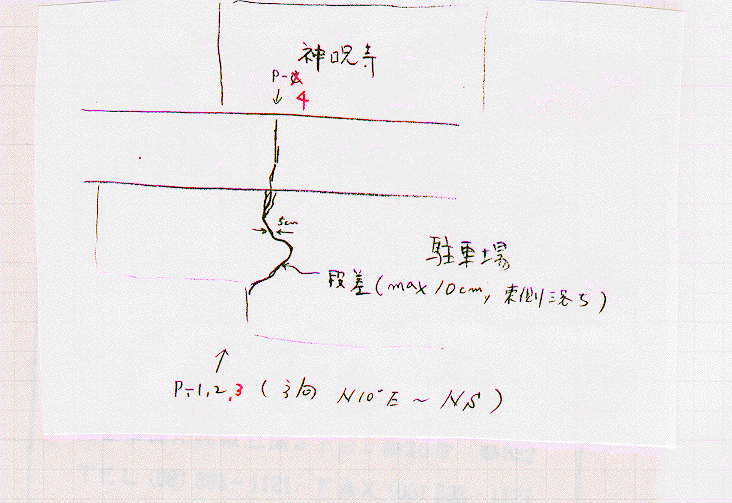 神呪寺
P-
4
5cm
駐車場
段差(max 10cm, 東側落ち)
P-1,2,3 (方向 N10°E ~ NS)